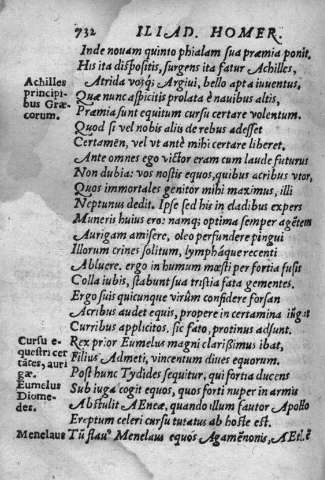 732 ILIAD. HOMER.
Inde nouam quinto phialam sua præmia ponit.
His ita dispositis, surgens ita fatur Achilles,
Achilles principibus Græcorum.
Atrida vosq́; Argiui, bello apta iuuentus,
Quæ nunc aspicitis prolata è nauibus altis,
Præmia sunt equitum cursu certare volentum.
Quod si vel nobis alijs de rebus adesset
Certamen, vel vt antè mihi certare liberet,
Ante omnes ego victor eram cum laude futurus
Non dubia: vos nostis equos, quibus acribus vtor,
Quos immortales genitor mihi maximus, illi
Neptunus dedit. Ipse sed his in dadibus expers
Muneris huius ero: namq; optima semper agētem
Aurigam amisere, oleo perfundere pingui
Illorum crines solitum, lympháque recenti
Abluere. ergo in humum mœsti per fortia fusis
Colla iubis, stabunt sua tristia fata gementes.
Ergo suis quicunque virûm confidere forsan
Acribus audet equis, propere in certamina iūgat
Curribus applicitos. sic fato, protinus adsunt.
Cursu equestri certātes, aurigæ. Eumelus Diomedes.
Rex prior Eumelus magni clarissimus ibat,
Filius Admeti, vincentum diues equorum.
Post hunc Tydides sequitur, qui fortia ducens
Sub iuga cogit equos, quos forti nuper in armis
Abstulit AEneæ, quando illum fautor Apollo
Ereptum celeri cursu tutatus ab hoste est.
Menelaus
Menelaus equos Agamēnonis,